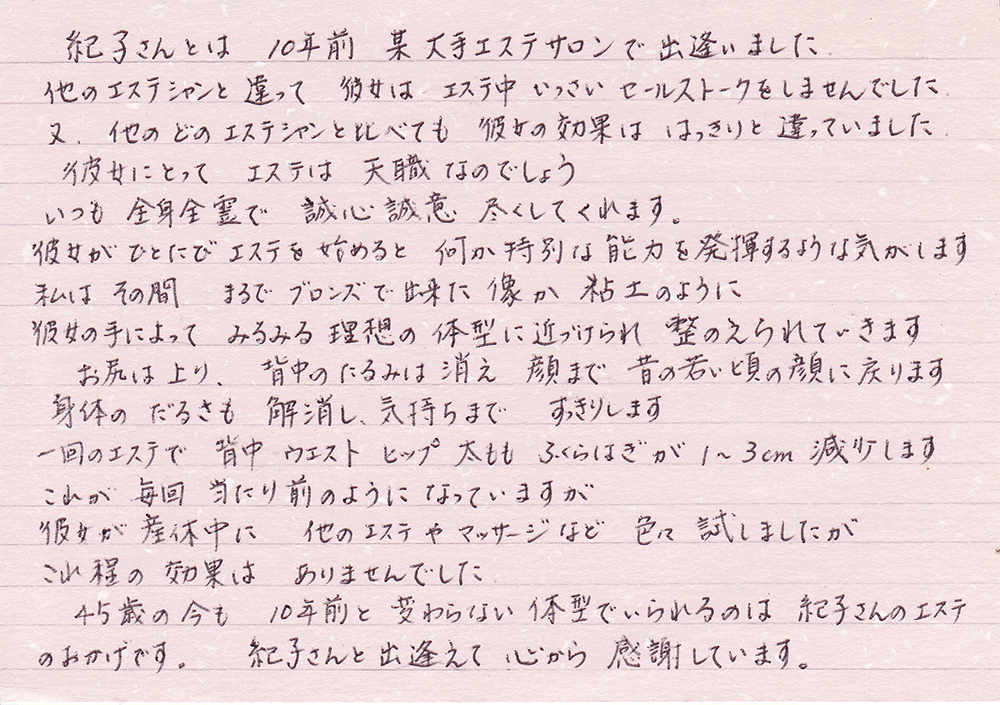 紀子さんとは 10年前 某大手エステサロンで出逢いました.
他のエステシャンと違って 彼女は エステ中 いっさい セールストークをしませんでした.
又、他のどのエステシャンと比べても 彼女の効果は はっきりと違っていました.
彼女にとって エステは 天職なのでしょう
いつも 全身全霊で 誠心誠意 尽くしてくれます。
彼女がひとたびエステを始めると 何か特別な能力を発揮するような気がします
私は その間 まるで ブロンズで出来た 像か 粘土のように
彼女の手によって みるみる 理想の 体型に近づけられ 整のえられていきます
お尻は上り、 背中のたるみは消え 顔まで 昔の若い頃の顔に戻ります
身体の だるさも 解消し、気持ちまで すっきりします
一回のエステで 背中 ウエスト ヒップ 太もも ふくらはぎが 1~3cm 減少します
これが 毎回 当たり前のように なっていますが
彼女が 産休中に 他のエステや マッサージなど 色々 試しましたが
これ程の 効果は ありませんでした.
45歳の今も 10年前と 変わらない 体型でいられるのは 紀子さんのエステ
のおかげです。 紀子さんと出逢えて 心から 感謝しています。